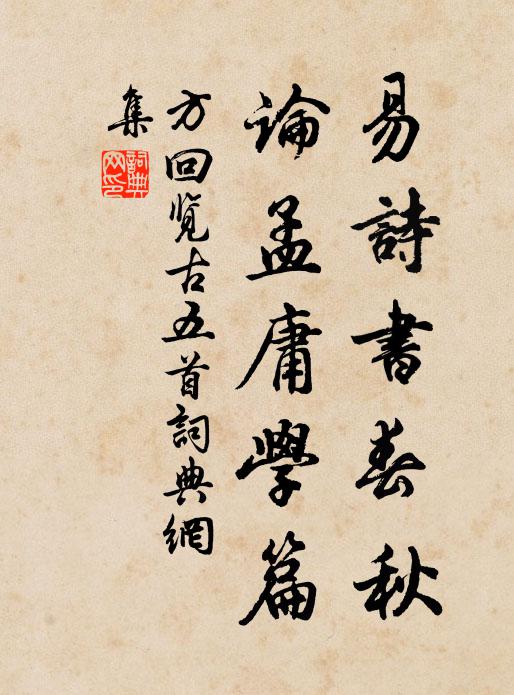 易詩書春秋
論孟庸學篇
方回览古五首詞典網
集
詞典网印